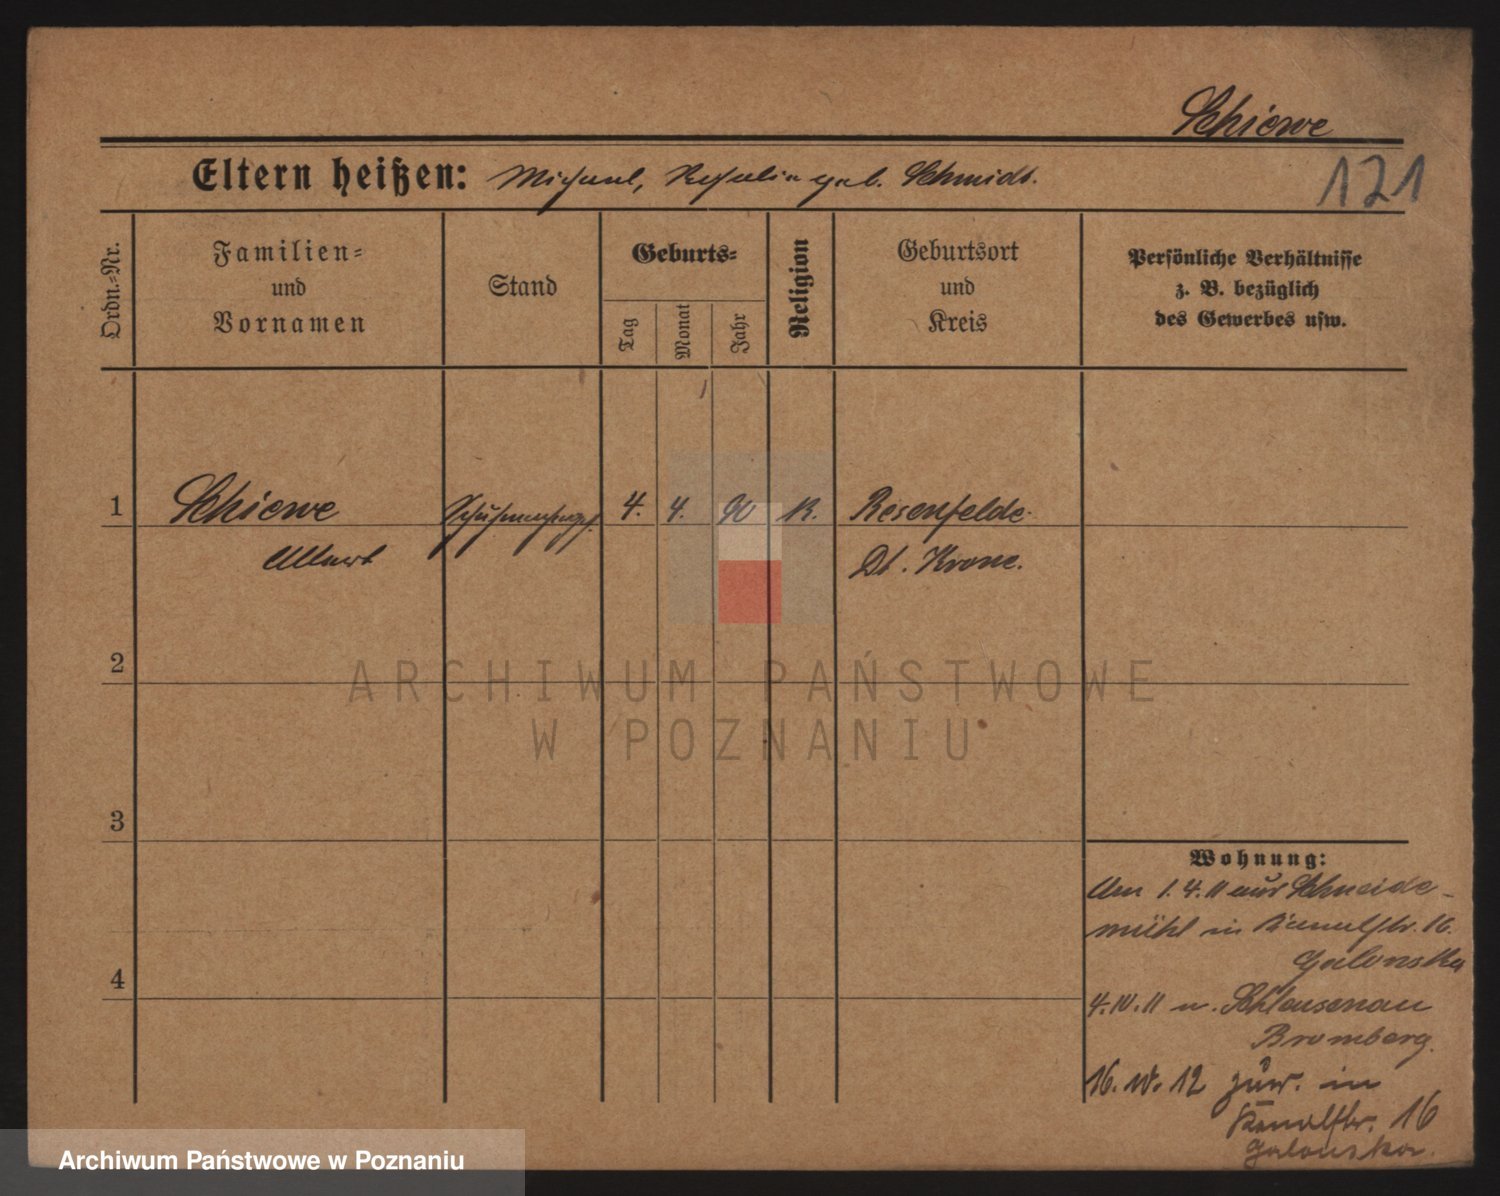 Schiewe
Eltern heißen: Michael, Rosalia geb. Schmidt.
121
Ordn.-Nr.
Familien-
und
Vornamen
Stand
Geburts-
Tag
Monat
Jahr
Religion
Geburtsort
und
Kreis
Persönliche Verhältnisse
z. B. bezüglich
des Gewerbes usw.
1
Schiewe
4. 4. 90 K. Rosenfelde
Albert
Dt. Krone.
2
3
4
Wohnung:
Am 1.4.11 aus Schneide-
mühl in 16.
Galonska
4.IV.11 n. Schleusenau
Bromberg.
16. IV. 12 zur. in
Kanalstr. 16
Galonska.
ARCHIWUM PAŃSTWOWE
W POZNANIU
Archiwum Państwowe w Poznaniu